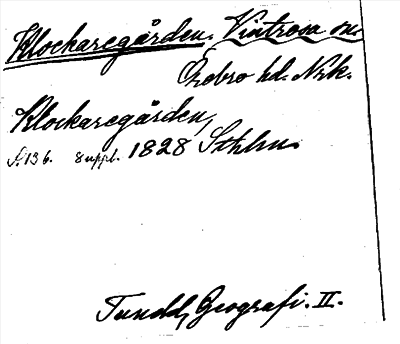 Klockaregården. Vintrosa sn.
Örebro hd. Nrk.
Klockaregården,
s. 136. suppl. 1828 Sthlm.
Tuneld, Geografi. II.